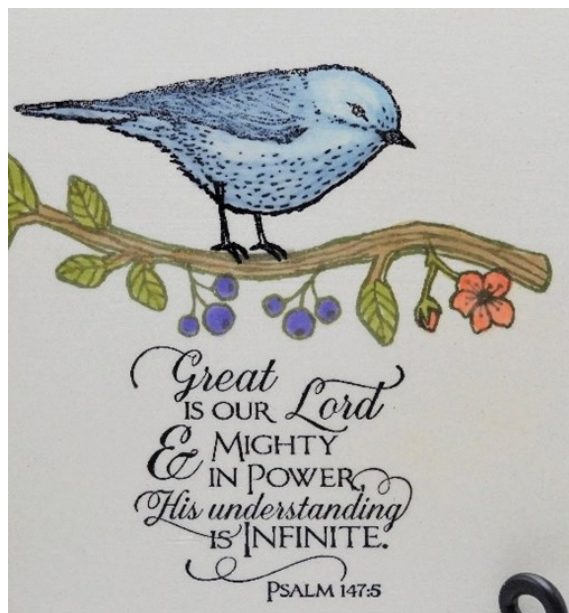 Great
is our Lord
& Mighty
in Power,
His understanding
is Infinite.
Psalm 147:5